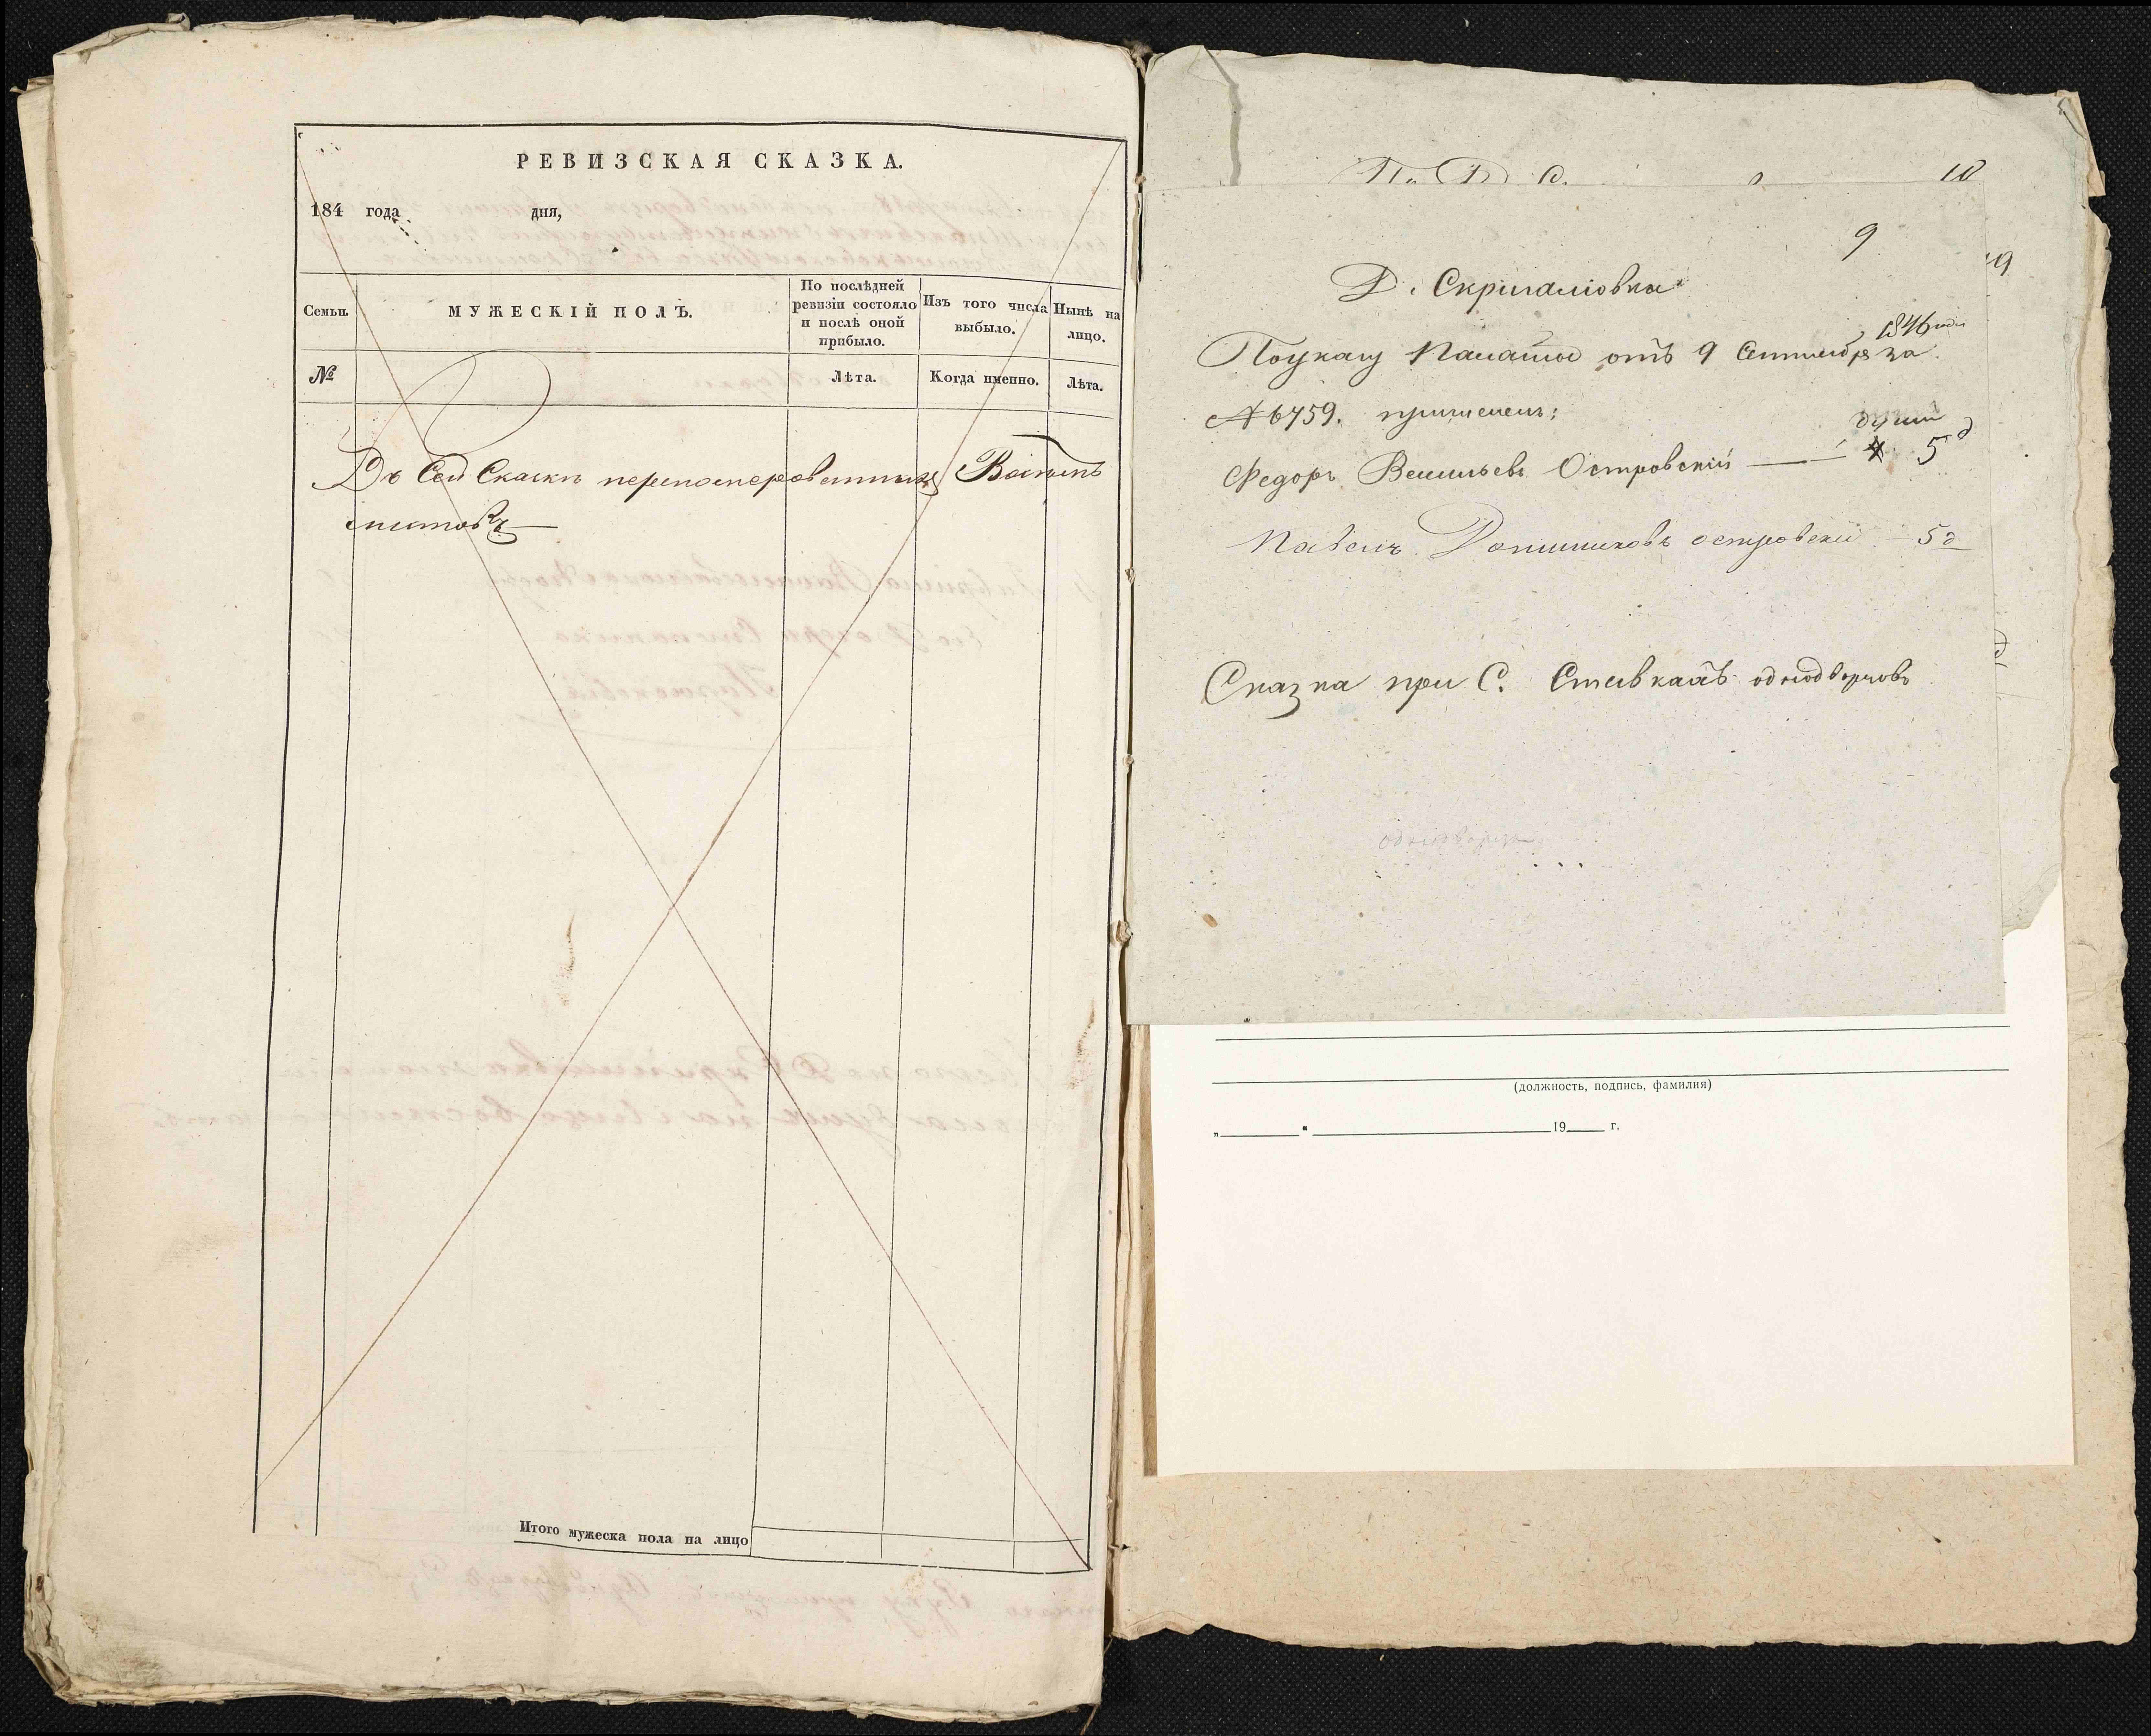 РЕВИЗСКАЯ СКАЗКА.
184 года дня,
Семьи.
МУЖЕСКІЙ ПОЛЪ.
По послѣдней ревизіи состояло и послѣ оной прибыло.
Изъ того числа выбыло.
Нынѣ на лицо.
№
Лѣта.
Когда именно.
Лѣта.
Въ Сей Сказкѣ перенумерованныхъ Восѣмь
листовъ
Итого мужеска пола на лицо
10
9
19
Д. Скрипаліовка
1846 года
По указу Палаты отъ 9 Сентября за
№ 6759. причислены:
души
Федоръ Васильевъ Островскій — 5 д
Павелъ островскій — 5 д
Сказка при С. Ставкахъ однодворцовъ
однодворцы
(должность, подпись, фамилия)
„ “ 19 г.